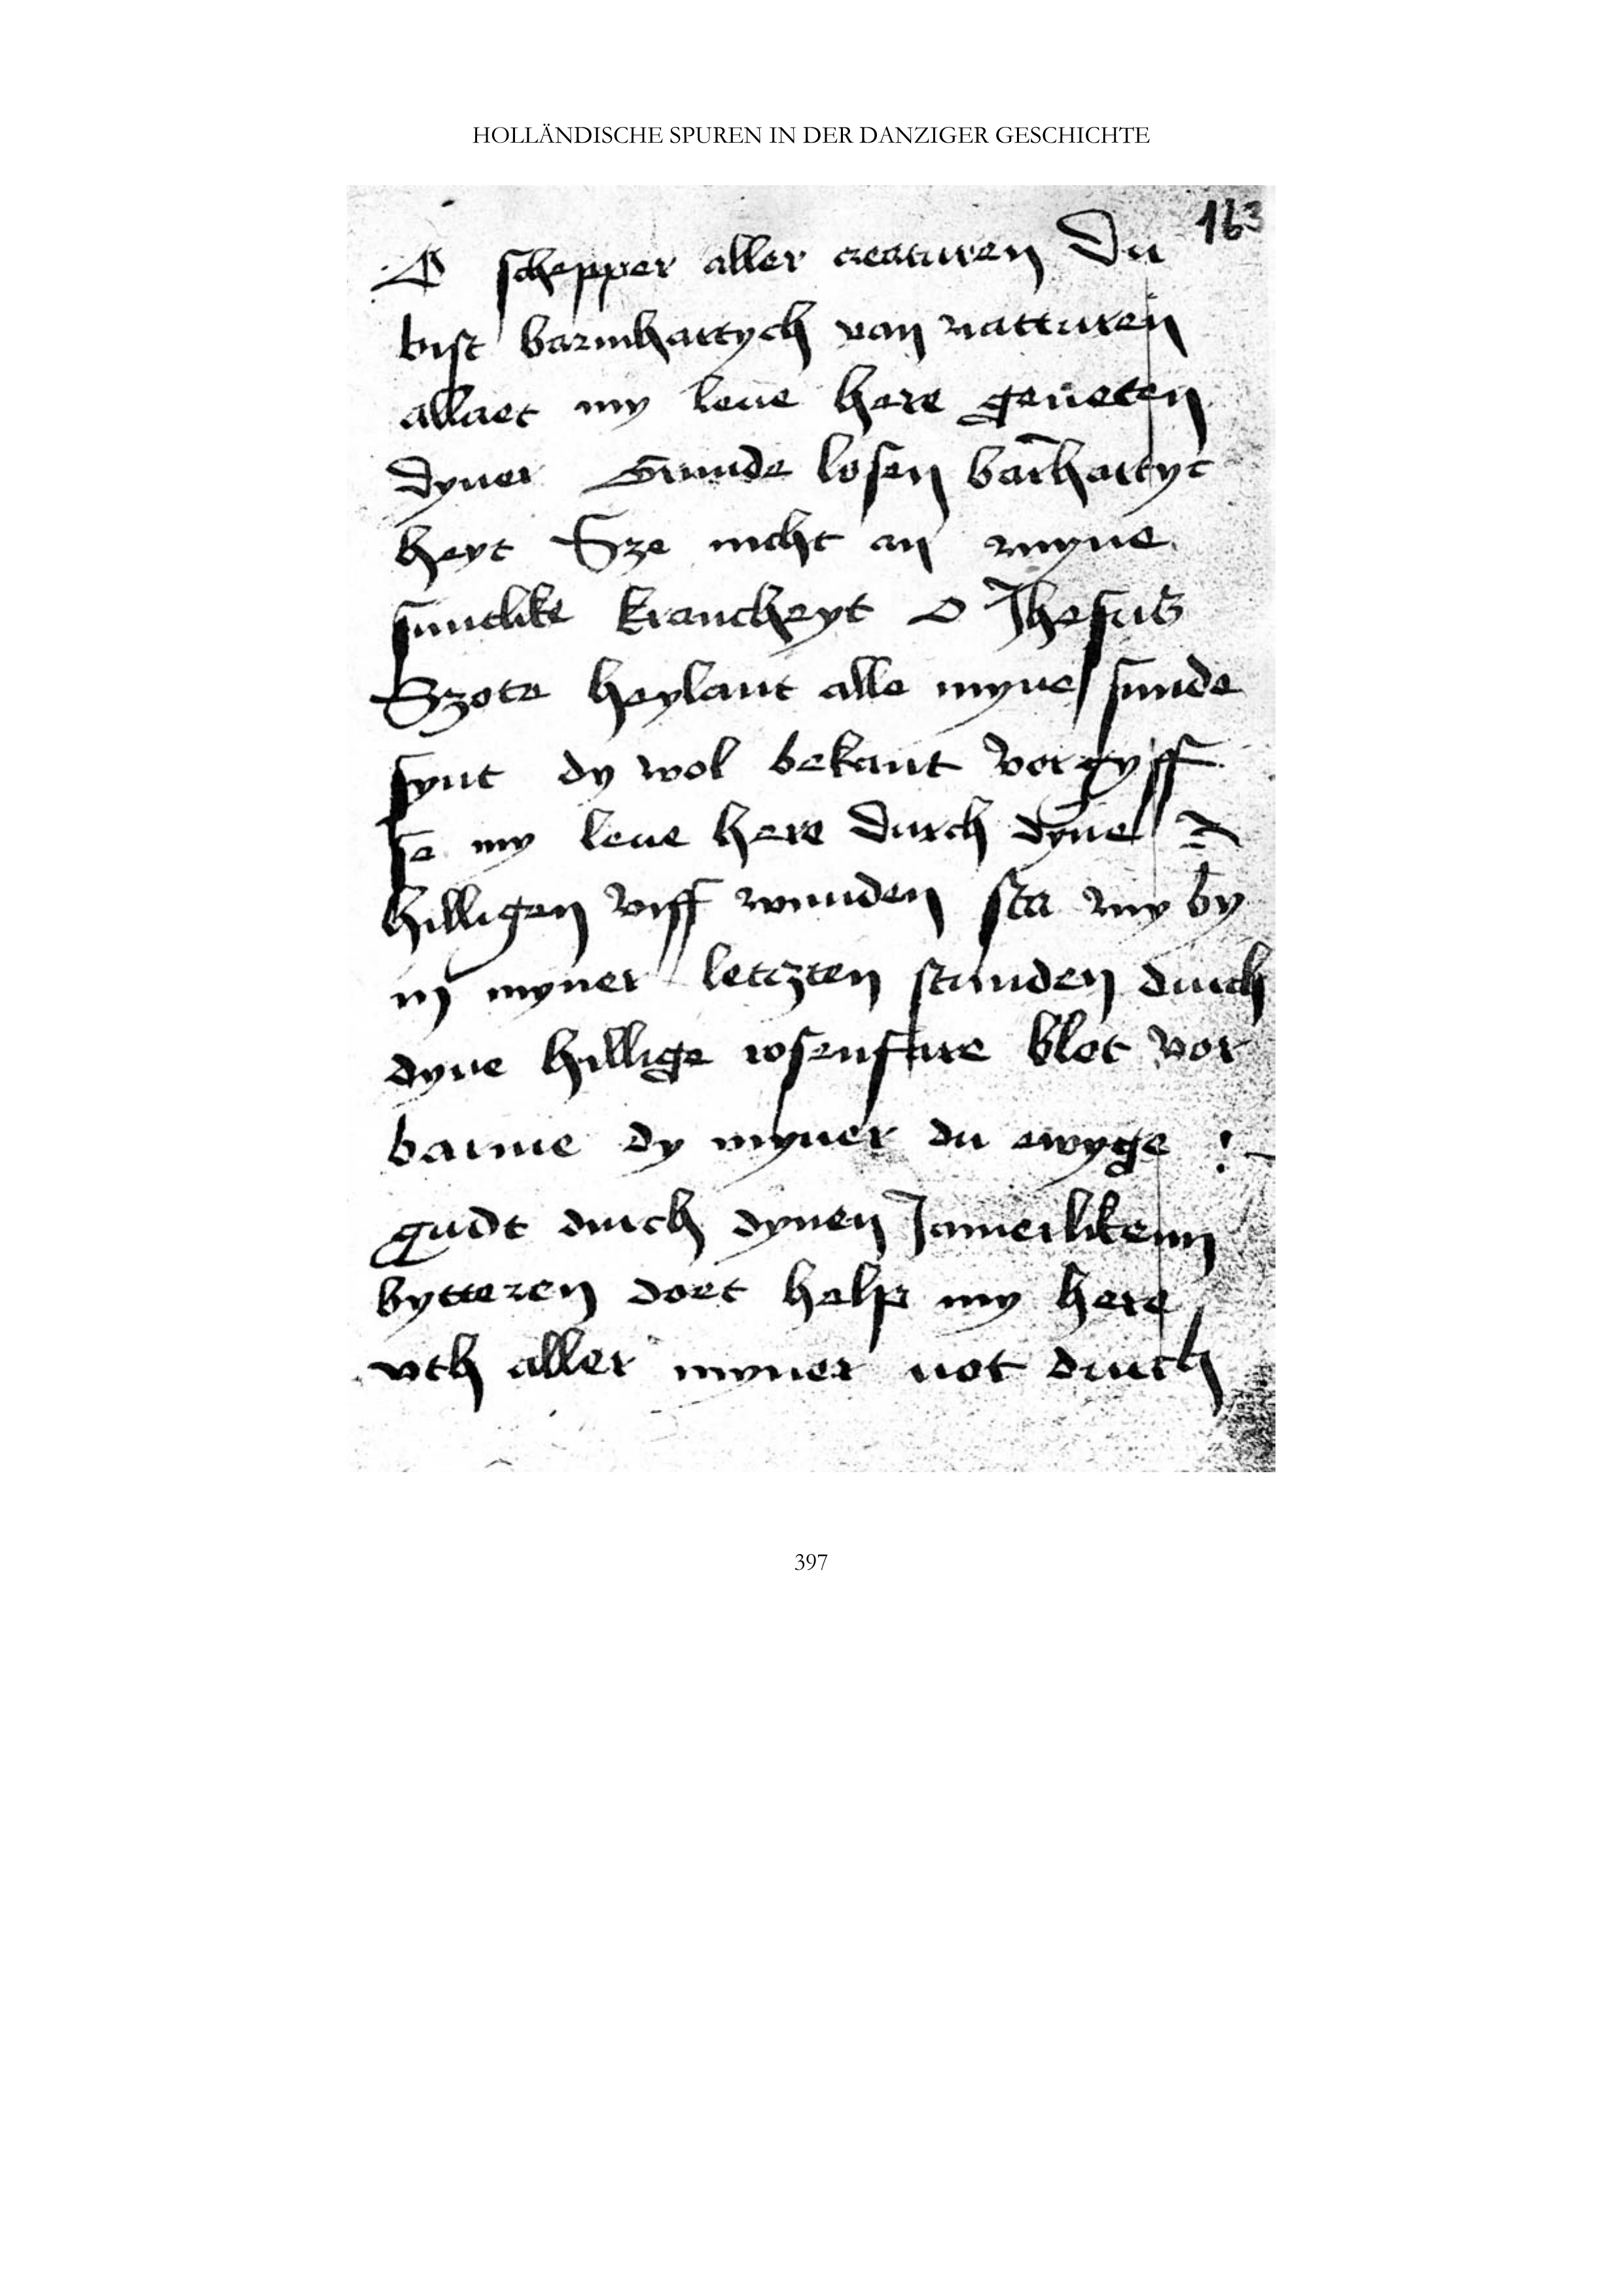 HOLLÄNDISCHE SPUREN IN DER DANZIGER GESCHICHTE
163
O schepper aller creaturen Du
bist barmhartych van natturen
allaet my leue here geneten
dyner Grunde losen barhartyc
heyt Sze nicht an myne
suntlike kranckeyt O Jhesus
Szote heylant alle myne sunde
synt dy wol bekant Vorgyff
se my leue here Durch dyne
hilligen viff wunden sta my by
in myner letczten stunden durch
dyne hillige rosenfare blot vor
barme dy myner du ewyge
gudt durch dynen Jamerlikenn
bytteren doet help my here
vth aller myner not durch
397